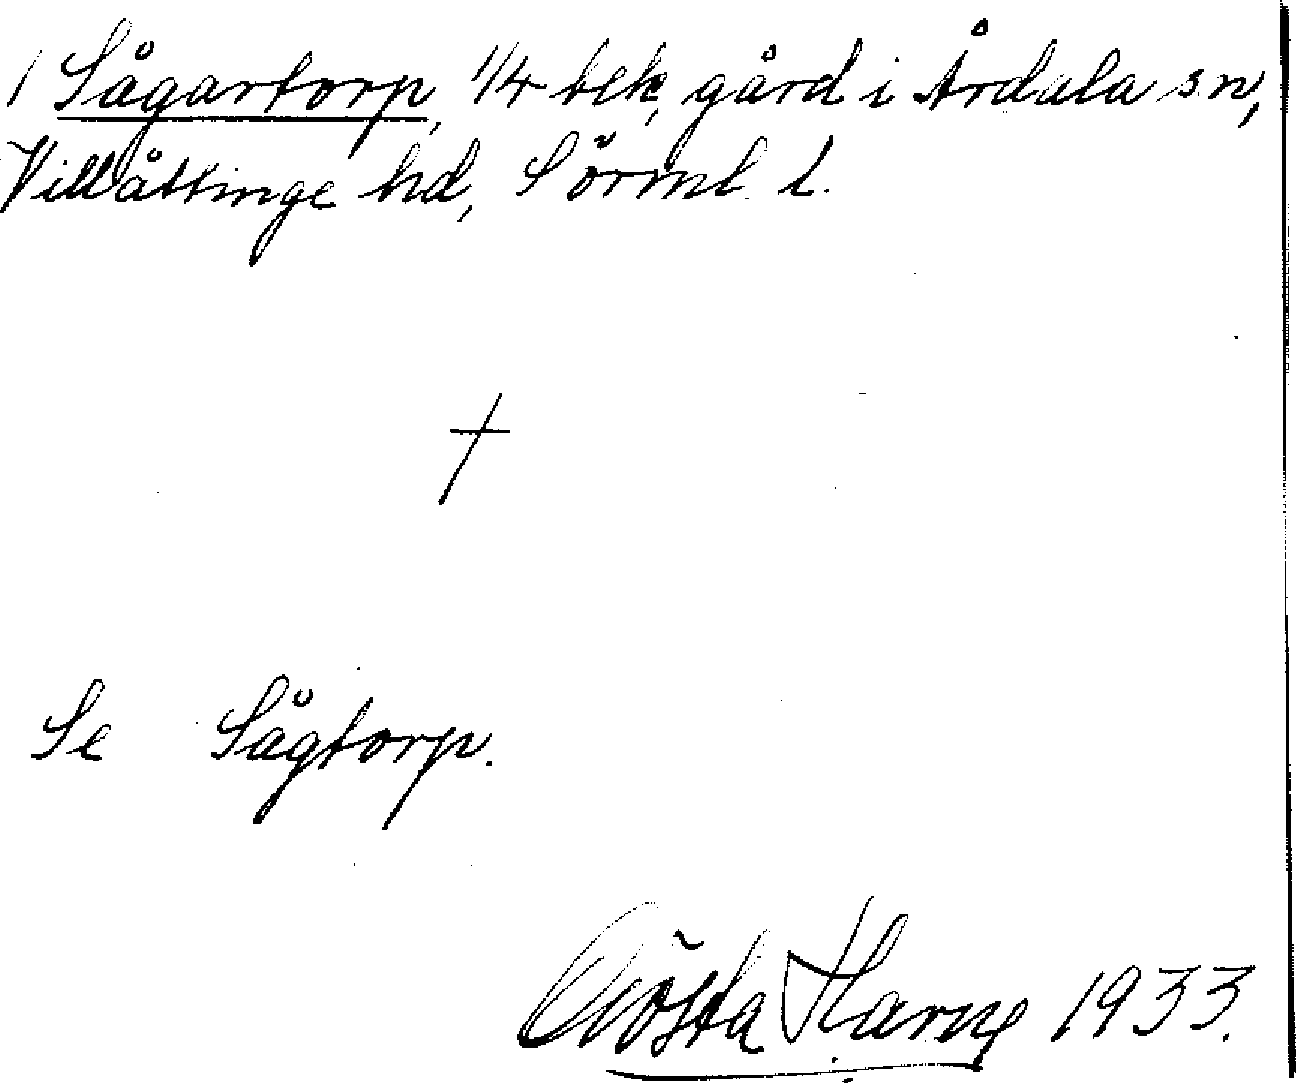 1 Sågartorp, 1/4 bek, gård i Årdala sn,
Villåttinge hd, Sörml. l.
†
Se Sågtorp.
Gösta 1933.